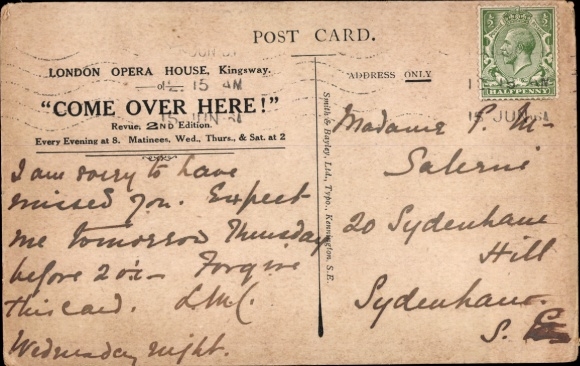 POST CARD.
LONDON OPERA HOUSE, Kingsway.
"COME OVER HERE!"
Revue, 2ND Edition.
Every Evening at 8. Matinees, Wed., Thurs., & Sat. at 2
ADDRESS ONLY
Smith & Bayley, Ltd., Typo., Kennington, S.E.
HALFPENNY
2. 15 AM
15 JUN
15 JUN
I am sorry to have
missed you. Expect
me tomorrow Thursday
before 2 o/c Forgive
this card.
Wednesday night.
Madame P. M-
Salerni
20 Sydenham
Hill
Sydenham.
S. E